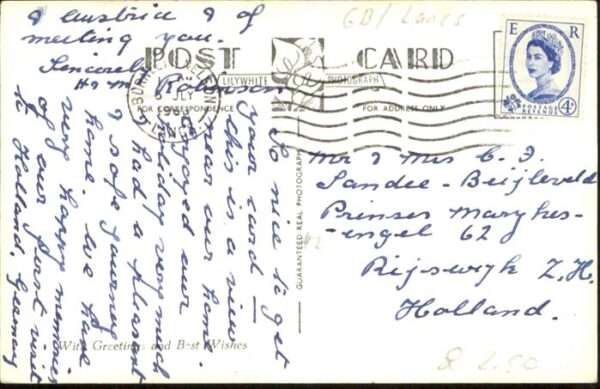 GB/Lancs
POST CARD
LILYWHITE PHOTOGRAPH
FOR CORRESPONDENCE
FOR ADDRESS ONLY
GUARANTEED REAL PHOTOGRAPH
E R
POSTAGE
REVENUE
4D
JLY
1960
So nice to get
your card —
this is a view
near our home.
enjoyed our
holiday very much
& had a pleasant
& safe journey
home. We have
very happy memories
of our first visit
to Holland, Germany
& Austria & of
meeting you.
Sincerely
Robinson
Mr & Mrs C. J.
Sandee-Beijleveld
Prinses Maryhes-
-engel 62
Rijswyk Z.H.
Holland.
With Greetings and Best Wishes
2.50